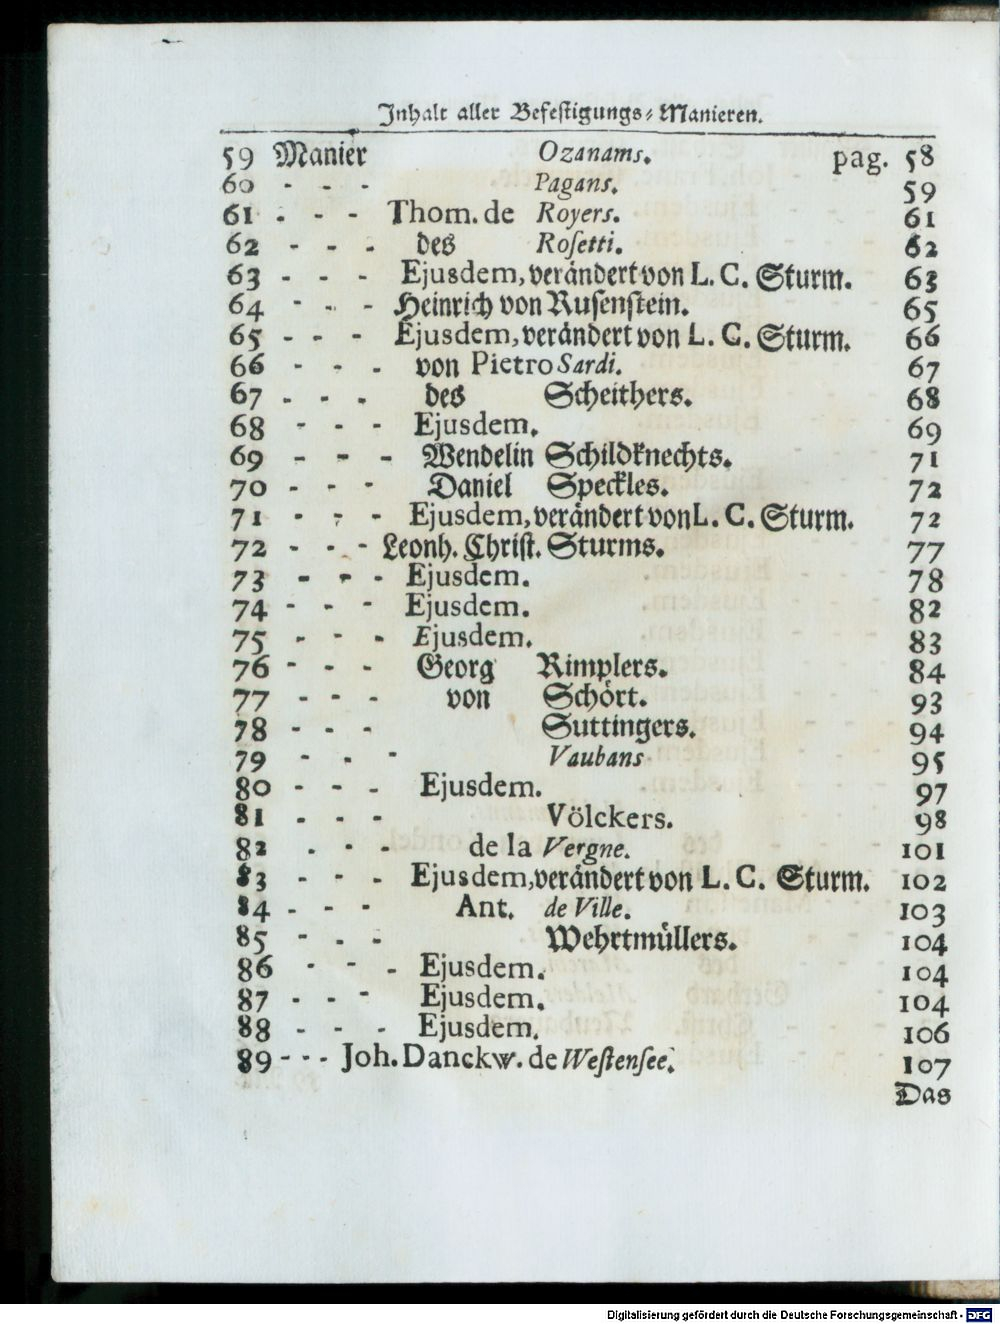 Inhalt aller Befestigungs-Manieren.
59 Manier Ozanams. pag. 58
60 - - - Pagans. 59
61 - - - Thom. de Royers. 61
62 - - - des Rosetti. 62
63 - - - Ejusdem, verändert von L. C. Sturm. 63
64 - - - Heinrich von Rusenstein. 65
65 - - - Ejusdem, verändert von L. C. Sturm. 66
66 - - - von Pietro Sardi. 67
67 - - - des Scheithers. 68
68 - - - Ejusdem. 69
69 - - - Wendelin Schildknechts. 71
70 - - - Daniel Speckles. 72
71 - - - Ejusdem, verändert von L. C. Sturm. 72
72 - - - Leonh. Christ. Sturms. 77
73 - - - Ejusdem. 78
74 - - - Ejusdem. 82
75 - - - Ejusdem. 83
76 - - - Georg Rimplers. 84
77 - - - von Schört. 93
78 - - - Suttingers. 94
79 - - - Vaubans 95
80 - - - Ejusdem. 97
81 - - - Völckers. 98
82 - - - de la Vergne. 101
83 - - - Ejusdem, verändert von L. C. Sturm. 102
84 - - - Ant. de Ville. 103
85 - - - Wehrtmüllers. 104
86 - - - Ejusdem. 104
87 - - - Ejusdem. 104
88 - - - Ejusdem. 106
89 - - - Joh. Danckw. de Westensee. 107
Das
Digitalisierung gefördert durch die Deutsche Forschungsgemeinschaft - DFG